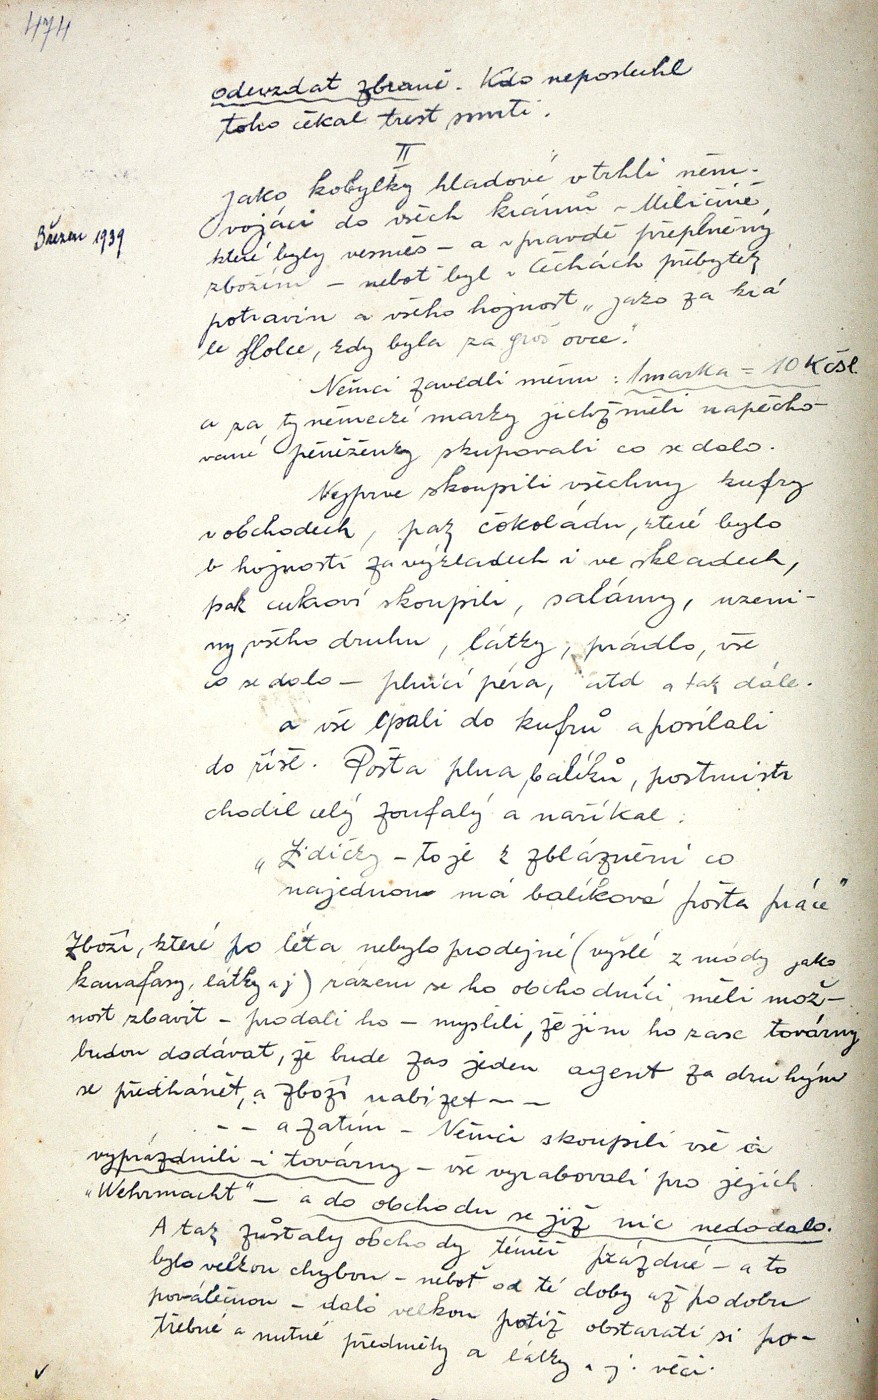 474
odevzdat zbraně. Kdo neposlechl
toho čekal trest smrti.
II
Březen 1939
Jako kobylky hladové vtrhli něm.
vojáci do všech krámů – Miličíně
které byly vesměs – a vpravdě přeplněny
zbožím – neboť byl v Čechách přebytek
potravin a všeho hojnost „jako za krá
le Holce, kdy byla za groš ovce."
Němci zavedli měnu: 1 marka = 10 Kčsl.
a za ty německé marky jichž měli napěcho-
vané peněženky skupovali co se dalo.
Nejprve skoupili všechny kufry
v obchodech, pak čokoládu, které bylo
v hojnosti za výkladech i ve skladech,
pak cukroví skoupili, salámy, uzeni-
ny všeho druhu, látky, prádlo, vše
co se dalo – plnící péra, atd a tak dále.
a vše cpali do kufrů a posílali
do říše. Pošta plna balíků, postmistr
chodil celý zoufalý a naříkal:
„Lidičky – to je k zbláznění co
najednou má balíková pošta práce"
Zboží, které po léta nebylo prodejné (vyšlé z módy jako
kanafasy, látky aj) rázem se ho obchodníci měli mož-
nost zbavit – prodali ho – myslili, že jim ho zase továrny
budou dodávat, že bude zas jeden agent za druhým
se předhánět, a zboží nabízet – –
– – a zatím – Němci skoupili vše a
vyprázdnili – i továrny – vše vyrabovali pro jejich
"Wehrmacht" – a do obchodu se již nic nedodalo.
A tak zůstaly obchody téměř prázdné – a to
bylo velkou chybou – neboť od té doby až po dobu
poválečnou – dalo velkou potíž obstarati si po-
třebné a nutné předměty a látky a j. věci.